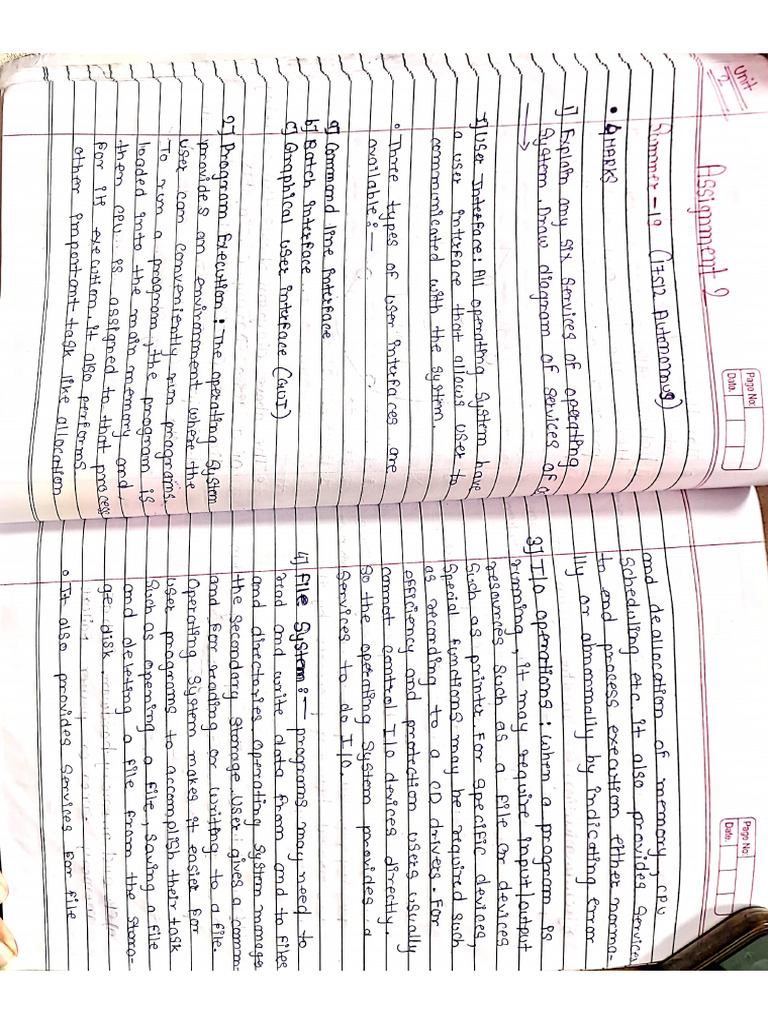 Unit
2
Assignment 2
Page No:
Date.
Summer – 19 (17512 Autonomus)
• 4 MARKS
1] Explain any six services of operating
System. Draw diagram of services of
→
1] User Interface: All operating system have
a user interface that allows user to
communicated with the system.
• Three types of user interfaces are
available:–
a] Command line interface
b] Batch interface
c] Graphical user interface (GUI)
2] Program Execution: The operating system
provides an environment where the
user can conveniently run programs.
To run a program, the program is
loaded into the main memory and
then CPU is assigned to that process
for its execution. it also performs
other important task like allocation
Page No:
Date:
and deallocation of memory, CPU
scheduling etc it also provides services
to end process execution either norma-
lly or abnormally by indicating error
3] I/O operations: when a program is
running, it may require input/output
resources such as a file or devices
such as printer. For specific devices,
special functions may be required such
as recording to a CD drivers. For
efficiency and protection users usually
cannot control I/O devices directly.
so the operating system provides a
services to do I/O.
4] File System:– programs may need to
read and write data from and to files
and directories. Operating system manage
the secondary storage. User gives a comm
and for reading or writing to a file.
Operating system makes it easier for
user programs to accomplish their task
such as opening a file, saving a file
and deleting a file from the stora-
ge disk.
• It also provides services for file